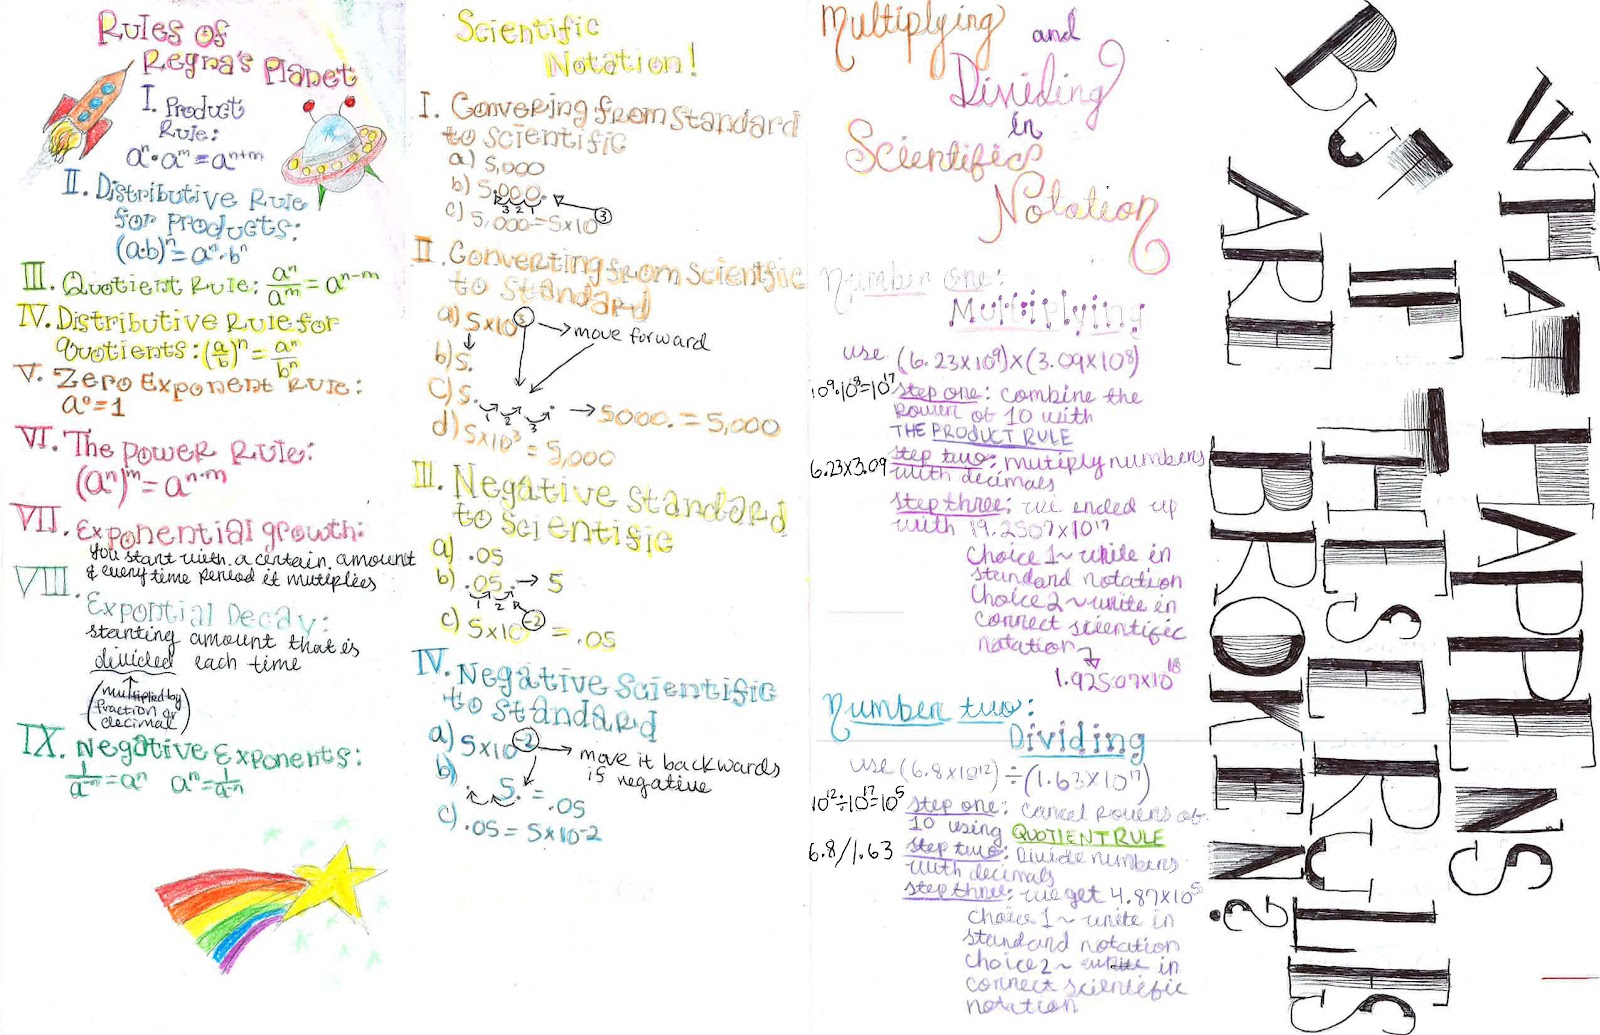 Rules of
Regna's Planet
I. Product
Rule:
aⁿ·aᵐ=aⁿ⁺ᵐ
II. Distributive Rule
for Products:
(a·b)ⁿ=aⁿ·bⁿ
III. Quotient Rule: aⁿ/aᵐ=aⁿ⁻ᵐ
IV. Distributive Rule for
quotients: (a/b)ⁿ=aⁿ/bⁿ
V. Zero Exponent Rule:
a⁰=1
VI. The Power Rule:
(aⁿ)ᵐ=aⁿ·ᵐ
VII. Exponential growth:
You start with a certain amount
& every time period it mutiplies
VIII. Expontial Decay:
starting amount that is
divided each time
(multiplied by
fraction or
decimal)
IX. Negative Exponents:
1/a⁻ⁿ=aⁿ aⁿ=1/a⁻ⁿ
Scientific
Notation!
I. Convering from Standard
to scientific
a) 5,000
b) 5,000.
3 2 1
3
c) 5,000=5x10
II. Converting from Scientific
to standard
a) 5x10³ → move forward
b) 5.
c) 5. → 5000. = 5,000
1 2 3
d) 5x10³ = 5,000
III. Negative Standard
to scientific
a) .05
b) .05. → 5
1 2
c) 5x10⁻² = .05
IV. Negative Scientific
to standard
a) 5x10⁻² → move it backwards
is negative
b) . 5. = .05
c) .05 = 5x10-2
Multiplying and
Dividing
in
Scientific
Notation
Number one:
Multiplying
use (6.23x10⁹)x(3.09x10⁸)
10⁹·10⁸=10¹⁷ step one: combine the
power of 10 with
THE PRODUCT RULE
6.23x3.09 step two: mutiply numbers
with decimals
step three: we ended up
with 19.2507x10¹⁷
Choice 1~ write in
standard notation
Choice 2~ write in
correct scientific
notation
1.92507x10¹⁸
Number two:
Dividing
use (6.8x10¹²)÷(1.63x10¹⁷)
10¹²÷10¹⁷=10⁵ step one: cancel powers of
10 using QUOTIENT RULE
6.8/1.63 step two: Divide numbers
with decimals
step three: we get 4.87x10⁵
choice 1~ write in
standard notation
choice 2~ write in
correct scientific
notation
WHAT HAPPENS
BUT IF THESE RULES
ARE BROKEN?